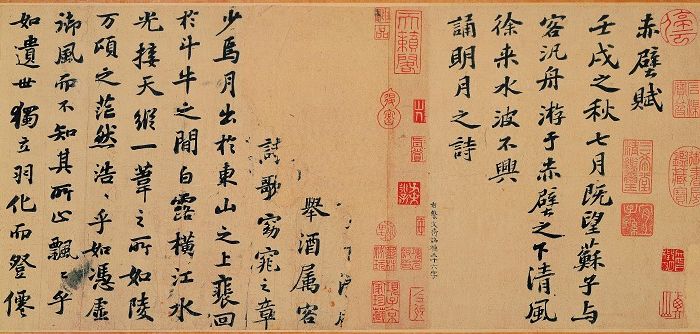 赤壁賦
壬戌之秋七月既望蘇子與
客汎舟游于赤壁之下清風
徐來水波不興
誦明月之詩
右繫文待詔補三十六字
天籟閣
舉酒属客
詩歌窈窕之章
少焉月出於東山之上裴回
於斗牛之間白露橫江水
光接天縱一葦之所如陵
万頃之茫然浩〻乎如憑虛
御風而不知其所止飄〻乎
如遺世獨立羽化而登僊